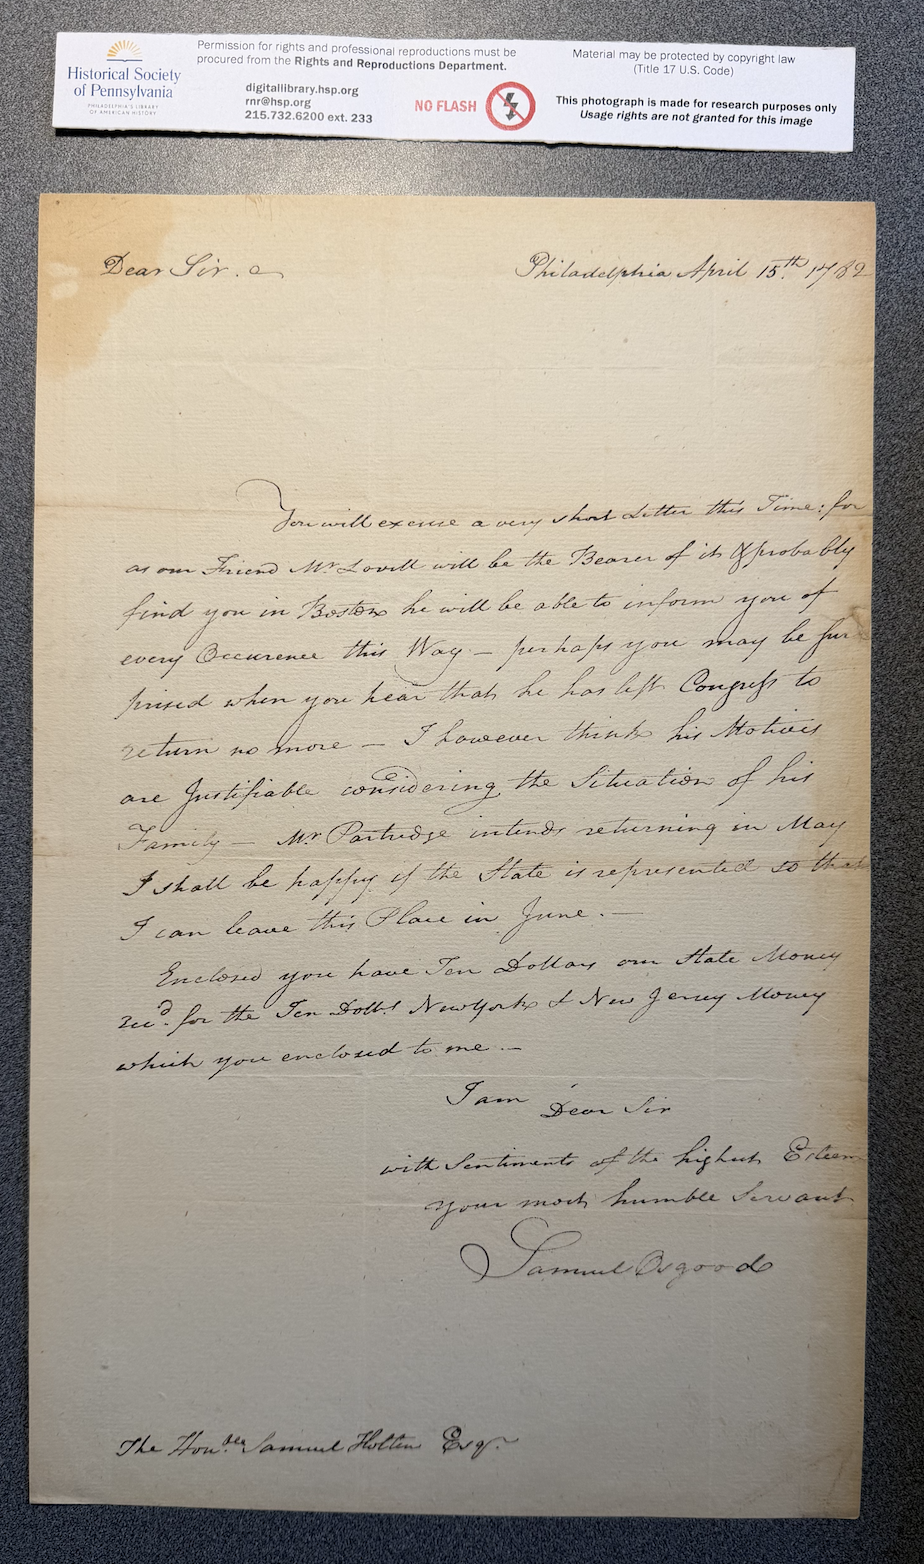 Historical Society
of Pennsylvania
PHILADELPHIA'S LIBRARY
OF AMERICAN HISTORY
Permission for rights and professional reproductions must be
procured from the Rights and Reproductions Department.
digitallibrary.hsp.org
rnr@hsp.org
215.732.6200 ext. 233
NO FLASH
Material may be protected by copyright law
(Title 17 U.S. Code)
This photograph is made for research purposes only
Usage rights are not granted for this image
Dear Sir.
Philadelphia April 15.th 1782
You will excuse a very short Letter this Time: for
as our Friend Mr. Lovell will be the Bearer of it & probably
find you in Boston he will be able to inform you of
every Occurence this Way – perhaps you may be sur
prised when you hear that he has left Congress to
return no more – I however think his Motives
are Justifiable considering the Situation of his
Family – Mr. Partridge intends returning in May
I shall be happy if the State is represented so that
I can leave this Place in June. –
Enclosed you have Ten Dollars our State Money
recd. for the Ten Dolls. New York & New Jersey Money
which you enclosed to me. –
I am
Dear Sir
with Sentiments of the highest Esteem
your most humble Servant
Samuel Osgood
The Honble. Samuel Holten Esqr.